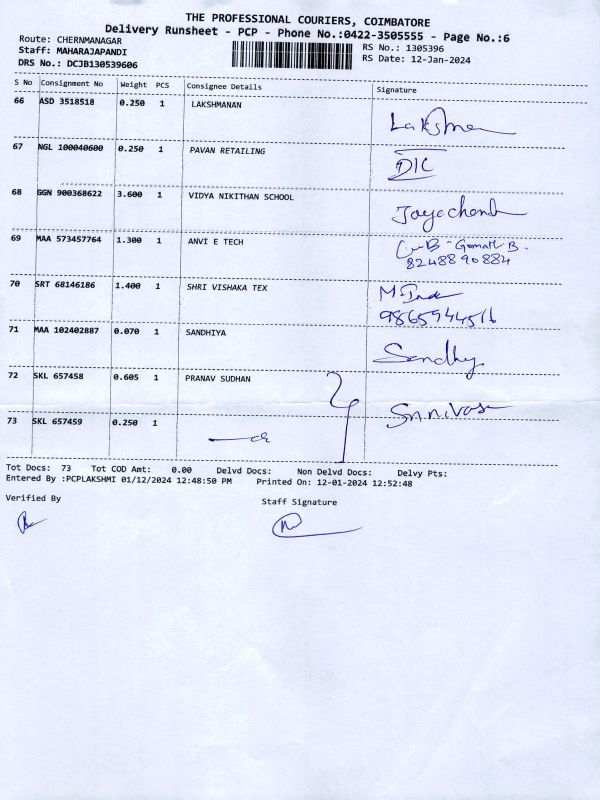 THE PROFESSIONAL COURIERS, COIMBATORE
Delivery Runsheet - PCP - Phone No.:0422-3505555 - Page No.:6
Route: CHERNMANAGAR
RS No.: 1305396
Staff: MAHARAJAPANDI
RS Date: 12-Jan-2024
DRS No.: DCJB130539606
S No Consignment No Weight PCS Consignee Details Signature
66 ASD 3518518 0.250 1 LAKSHMANAN
67 NGL 100040600 0.250 1 PAVAN RETAILING DIC
68 GGN 900368622 3.600 1 VIDYA NIKITHAN SCHOOL Jayachand
69 MAA 573457764 1.300 1 ANVI E TECH Gomathi B.
8248890884
70 SRT 68146186 1.400 1 SHRI VISHAKA TEX
9865944516
71 MAA 102402887 0.070 1 SANDHIYA Sandhy
72 SKL 657458 0.605 1 PRANAV SUDHAN Srinivas
73 SKL 657459 0.250 1
Tot Docs: 73 Tot COD Amt: 0.00 Delvd Docs: Non Delvd Docs: Delvy Pts:
Entered By :PCPLAKSHMI 01/12/2024 12:48:50 PM Printed On: 12-01-2024 12:52:48
Verified By Staff Signature